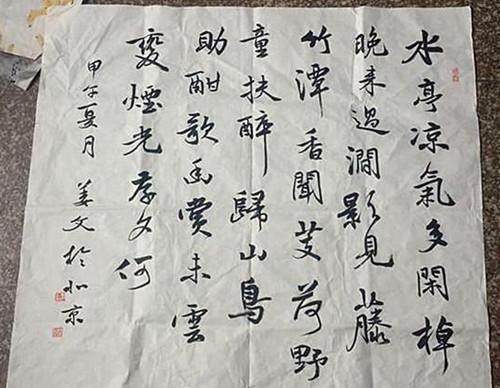 水亭涼氣多閑棹
晚来過澗影見藤
竹潭香聞芰荷野
童扶醉歸山鳥
助酣歌幽賞未雲
變煙光奈夕何
甲午夏月 姜文於北京